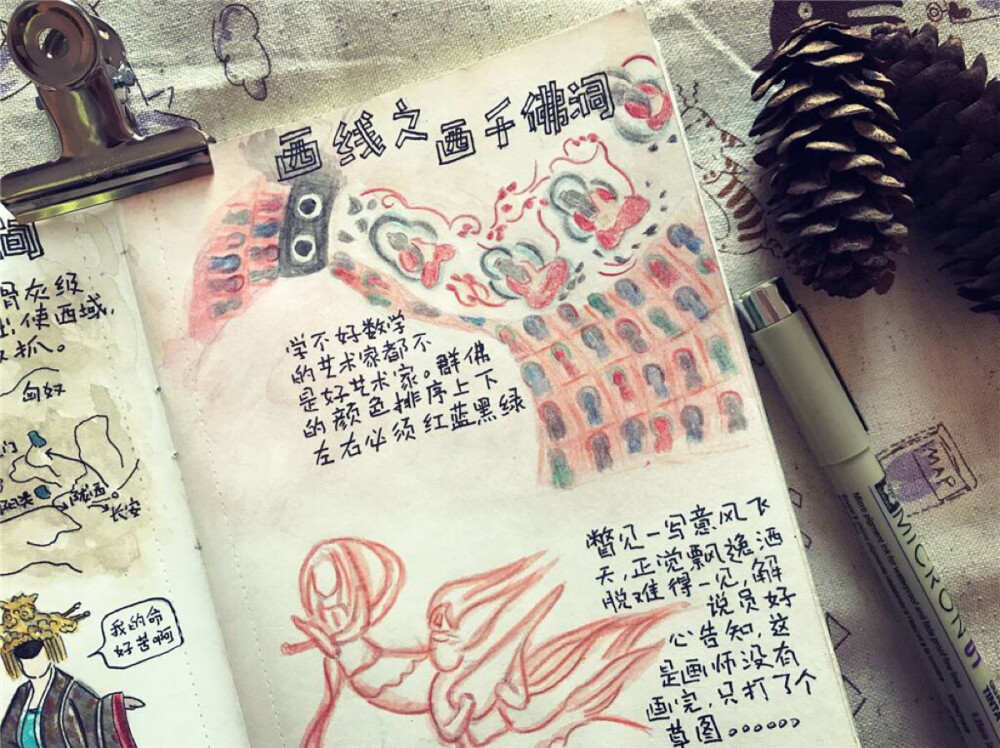 西线之西千佛洞
学不好数学
的艺术家都不
是好艺术家。群佛
的颜色排序上下
左右必须红蓝黑绿
瞥见一写意风飞
天,正觉飘逸洒
脱难得一见,解
说员好
心告知,这
是画师没有
画完,只打了个
草图。。。。。。
洞
骨灰级
出使西域,
抓。
匈奴
门
阳关
陇西
长安
我的命
好苦啊
MAP
MICRON 01